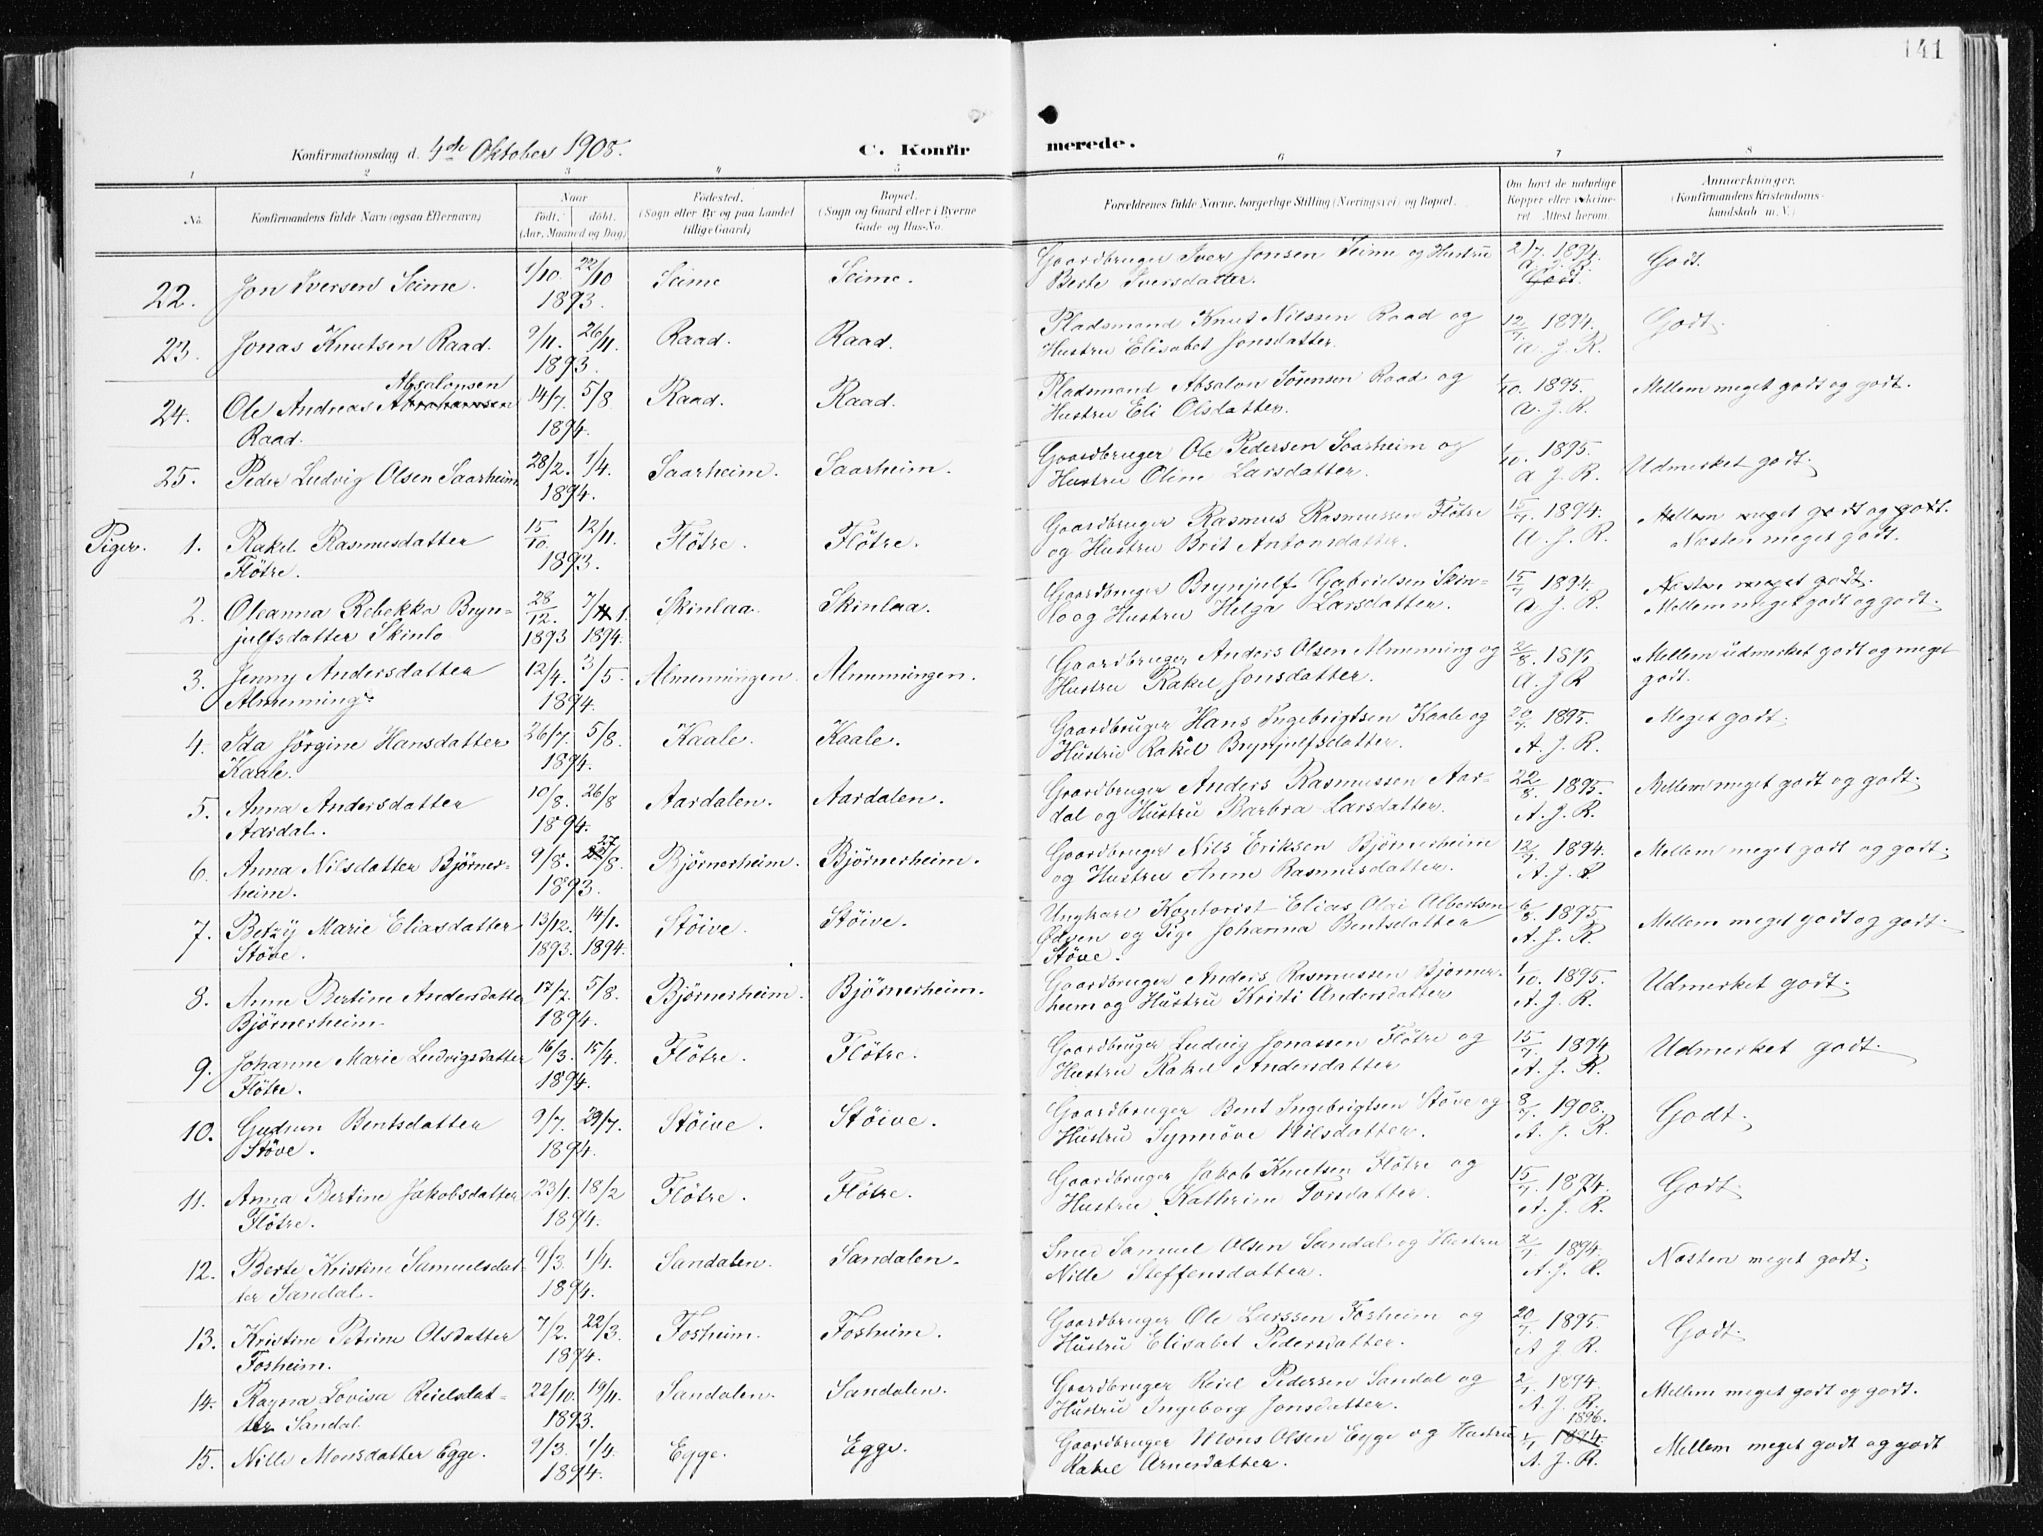 141
Konfirmationsdag d. 4de Oktober 1908.
C. Konfirmerede.
1 2 3 4 5 6 7 8
No.
Konfirmandens fulde Navn (ogsaa Efternavn)
Naar
født, døbt.
(Aar, Maaned og Dag)
Fødested.
(Sogn eller By og paa Landet
tillige Gaard)
Bopæl.
(Sogn og Gaard eller i Byerne
Gade og Hus-No.
Forældrenes fulde Navne, borgerlige Stilling (Næringsvei) og Bopæl.
Om havt de naturlige
Kopper eller vakcine-
ret. Attest herom.
Anmærkninger.
(Konfirmandens Kristendoms-
kundskab m. V.)
22. Jon Iversen Seime. 1/10 22/10 1893. Seime Seime. Gaardbruger Iver Jonsen Seime og Hustru
Berte Iversdatter. 2/7 1894. A. J. R. Godt. Godt.
23. Jonas Knutsen Raad. 9/11 26/11 1893. Raad. Raad. Pladsmand Knut Nilssen Raad og
Hustru Elisabet Jonsdatter. 12/7 1894. A. J. R. Godt.
24. Ole Andreas Abrahamsen Absalonsen
Raad. 14/7 5/8 1894. Raad. Raad. Pladsmand Absalon Sørensen Raad og
Hustru Eli Olsdatter. 1/10. 1895. A. J. R. Mellem meget godt og godt.
25. Peder Ludvig Olsen Saarheim 28/2. 1/4. 1894. Saarheim. Saarheim. Gaardbruger Ole Pedersen Saarheim og
Hustru Oline Larsdatter. 1/10. 1895. A. J. R. Udmerket godt.
Piger. 1. Rakel Rasmusdatter
Fløtre. 15/10 12/11 1893. Fløtre. Fløtre. Gaardbruger Rasmus Rasmussen Fløtre
og Hustru Brit Antonsdatter. 15/7 1894. A. J. R. Mellem meget godt og godt.
Næsten meget godt.
2. Oleanna Rebekka Bryn-
julfsdatter Skinlo 28/12. 1893 7/1 1894. Skinlaa. Skinlaa. Gaardbruger Brynjulf Gabrielsen Skin-
lo og Hustru Helga Larsdatter. 15/7 1894 A. J. R. Næsten meget godt.
Mellem meget godt og godt.
3. Jenny Andersdatter
Almenning 12/4. 3/5. 1894. Almenningen. Almenningen. Gaardbruger Anders Olsen Almenning og
Hustru Rakel Jonsdatter. 2/8. A. J. R Mellem udmerket godt og meget
godt.
4. Ida Jørgine Hansdatter
Kaale. 26/7. 5/8. 1894. Kaale. Kaale. Gaardbruger Hans Ingebrigtsen Kaale og
Hustru Rakel Brynjulfsdatter. 20/7. 1895. A. J. R. Meget godt.
5. Anna Andersdatter
Aardal. 10/8. 26/8 1894. Aardalen. Aardalen. Gaardbruger Anders Rasmussen Aar-
dal og Hustru Barbra Larsdatter. 22/8. 1895. A. J. R. Mellem meget godt og godt.
6. Anna Nilsdatter Bjørner-
heim. 9/8. 27/8. 1893. Bjørnerheim. Bjørnerheim. Gaardbruger Nils Eriksen Bjørnerheim
og Hustru Anne Rasmusdatter. 12/7. 1894. A. J. R Mellem meget godt og godt.
7. Betzy Marie Eliasdatter
Støve. 13/12. 1893. 14/1. 1894. Støive. Støive. Ungkarl Kontorist Elias Olai Albertsen
Ødven og Pige Johanna Bentsdatter
Støve. 6/8. 1895. A. J. R. Mellem meget godt og godt.
8. Anne Bertine Andersdatter
Bjørnerheim. 17/7. 5/8. 1894. Bjørnerheim. Bjørnerheim. Gaardbruger Anders Rasmussen Bjørner-
heim og Hustru Kristi Andersdatter 1/10. 1895. A. J. R. Udmerket godt.
9. Johanne Marie Ludvigsdatter
Fløtre. 16/3. 15/4. 1894. Fløtre. Fløtre. Gaardbruger Ludvig Jonassen Fløtre og
Hustru Rakel Andersdatter 15/7. 1894 A. J. R. Udmerket godt.
10. Gudrun Bentsdatter
Støve. 9/7. 29/7. 1894. Støive. Støive. Gaardbruger Bent Ingebrigtsen Støve og
Hustru Synnøve Nilsdatter. 8/7. 1908. A. J. R. Godt.
11. Anna Bertine Jakobsdatter
Fløtre. 23/1. 18/2 1894. Fløtre. Fløtre. Gaardbruger Jakob Knutsen Fløtre og
Hustru Kathrine Tonsdatter. 15/7. 1874. A. J. R. Godt.
12. Berte Kristine Samuelsdat-
ter Sandal. 9/3. 1/4. 1894. Sandalen. Sandalen. Smed Samuel Olsen Sandal og Hustru
Nille Steffensdatter. 2/7. 1894. A. J. R. Næsten meget godt.
13. Kristine Petrine Olsdatter
Fosheim. 7/2. 22/3. 1894. Fosheim. Fosheim. Gaardbruger Ole Larssen Fosheim og
Hustru Elisabet Pedersdatter. 20/7. 1895. A. J. R. Godt.
14. Ragna Lovisa Reielsdat-
ter Sandal. 22/10. 19/11. 1893. Sandalen. Sandalen. Gaardbruger Reiel Pedersen Sandal og
Hustru Ingeborg Jonsdatter. 2/7. 1894. A. J. R. Mellem meget godt og godt.
15. Nille Monsdatter Egge. 9/3. 1/4. 1894. Egge. Egge. Gaardbruger Mons Olsen Egge og Hustru
Rakel Arnesdatter. 1/7 1894. 1896. A. J. R. Mellem meget godt og godt